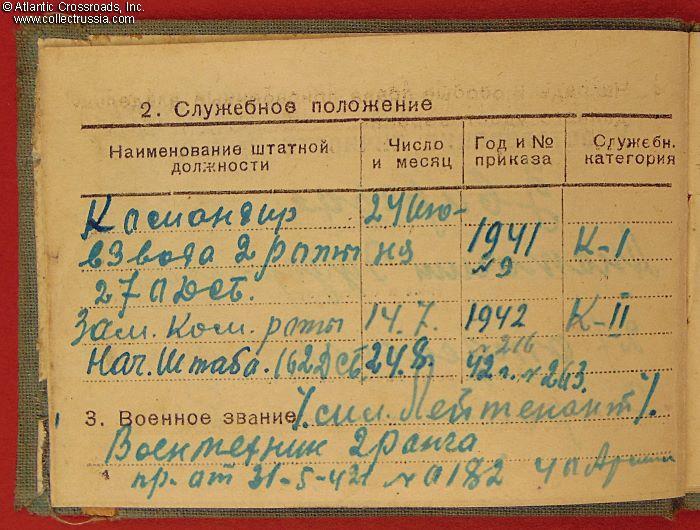 © Atlantic Crossroads, Inc.
www.collectrussia.com
2. Служебное положение
Наименование штатной должности Число и месяц Год и № приказа Служебн. категория
Командир 24 ию-
взвода 2 роты ня 1941 К-I
27 №9
Зам. Ком. роты 14.7. 1942 К-II
№216
Нач. Штаба. 162 24.8. 42 г. №263.
3. Военное звание Лейтенант
Воентехник 2 ранга
пр. от 31-5-42г №0182 Армии